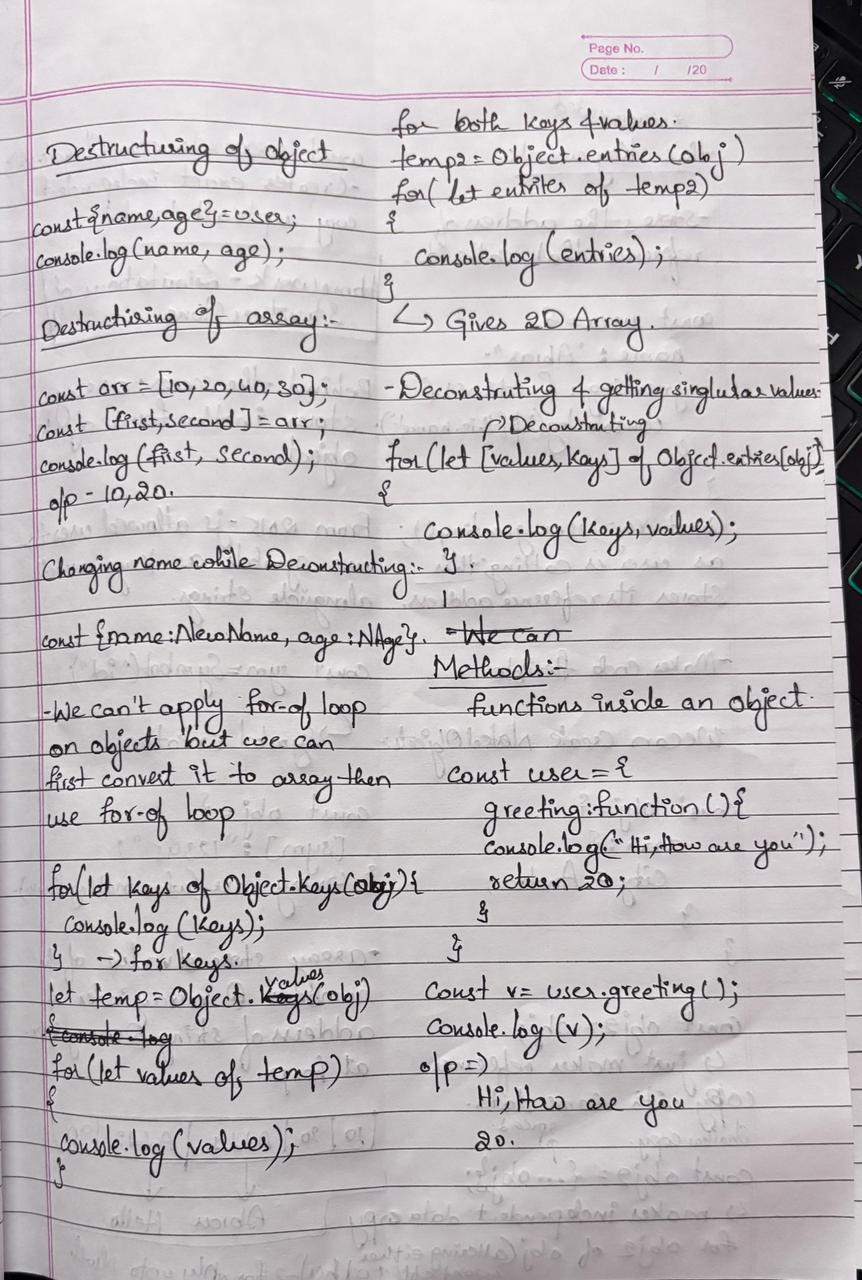 Page No.
Date : / /20
Destructuring of object
const{name,age}=user;
console.log(name, age);
Destructiring of array:-
const arr = [10,20,40,30];
const [first,second]=arr;
console.log(first, second);
o/p - 10,20.
Changing name while Deconstructing:-
const {name:NewName, age:NAge}.
-We can't apply for-of loop
on objects but we can
first convert it to array then
use for-of loop
for(let keys of Object.keys(obj){
console.log(keys);
} -> for keys.
let temp=Object.values(obj)
for(let values of temp)
{
console.log(values);
}
for both keys & values.
temp2=Object.entries(obj)
for( let entriies of temp2)
{
Console.log(entries);
}
↳ Gives 2D Array.
-Deconstruting & getting singludar values
↱Deconstruting
for(let [values,keys] of Object.entries[obj]
{
Console.log(keys,values);
}.
-We can
Methods:-
functions inside an object.
Const user={
greeting:function(){
console.log("Hi,How are you");
return 20;
}
}
Const v= user.greeting();
Console.log(v);
o/p=>
Hi,How are you
20.